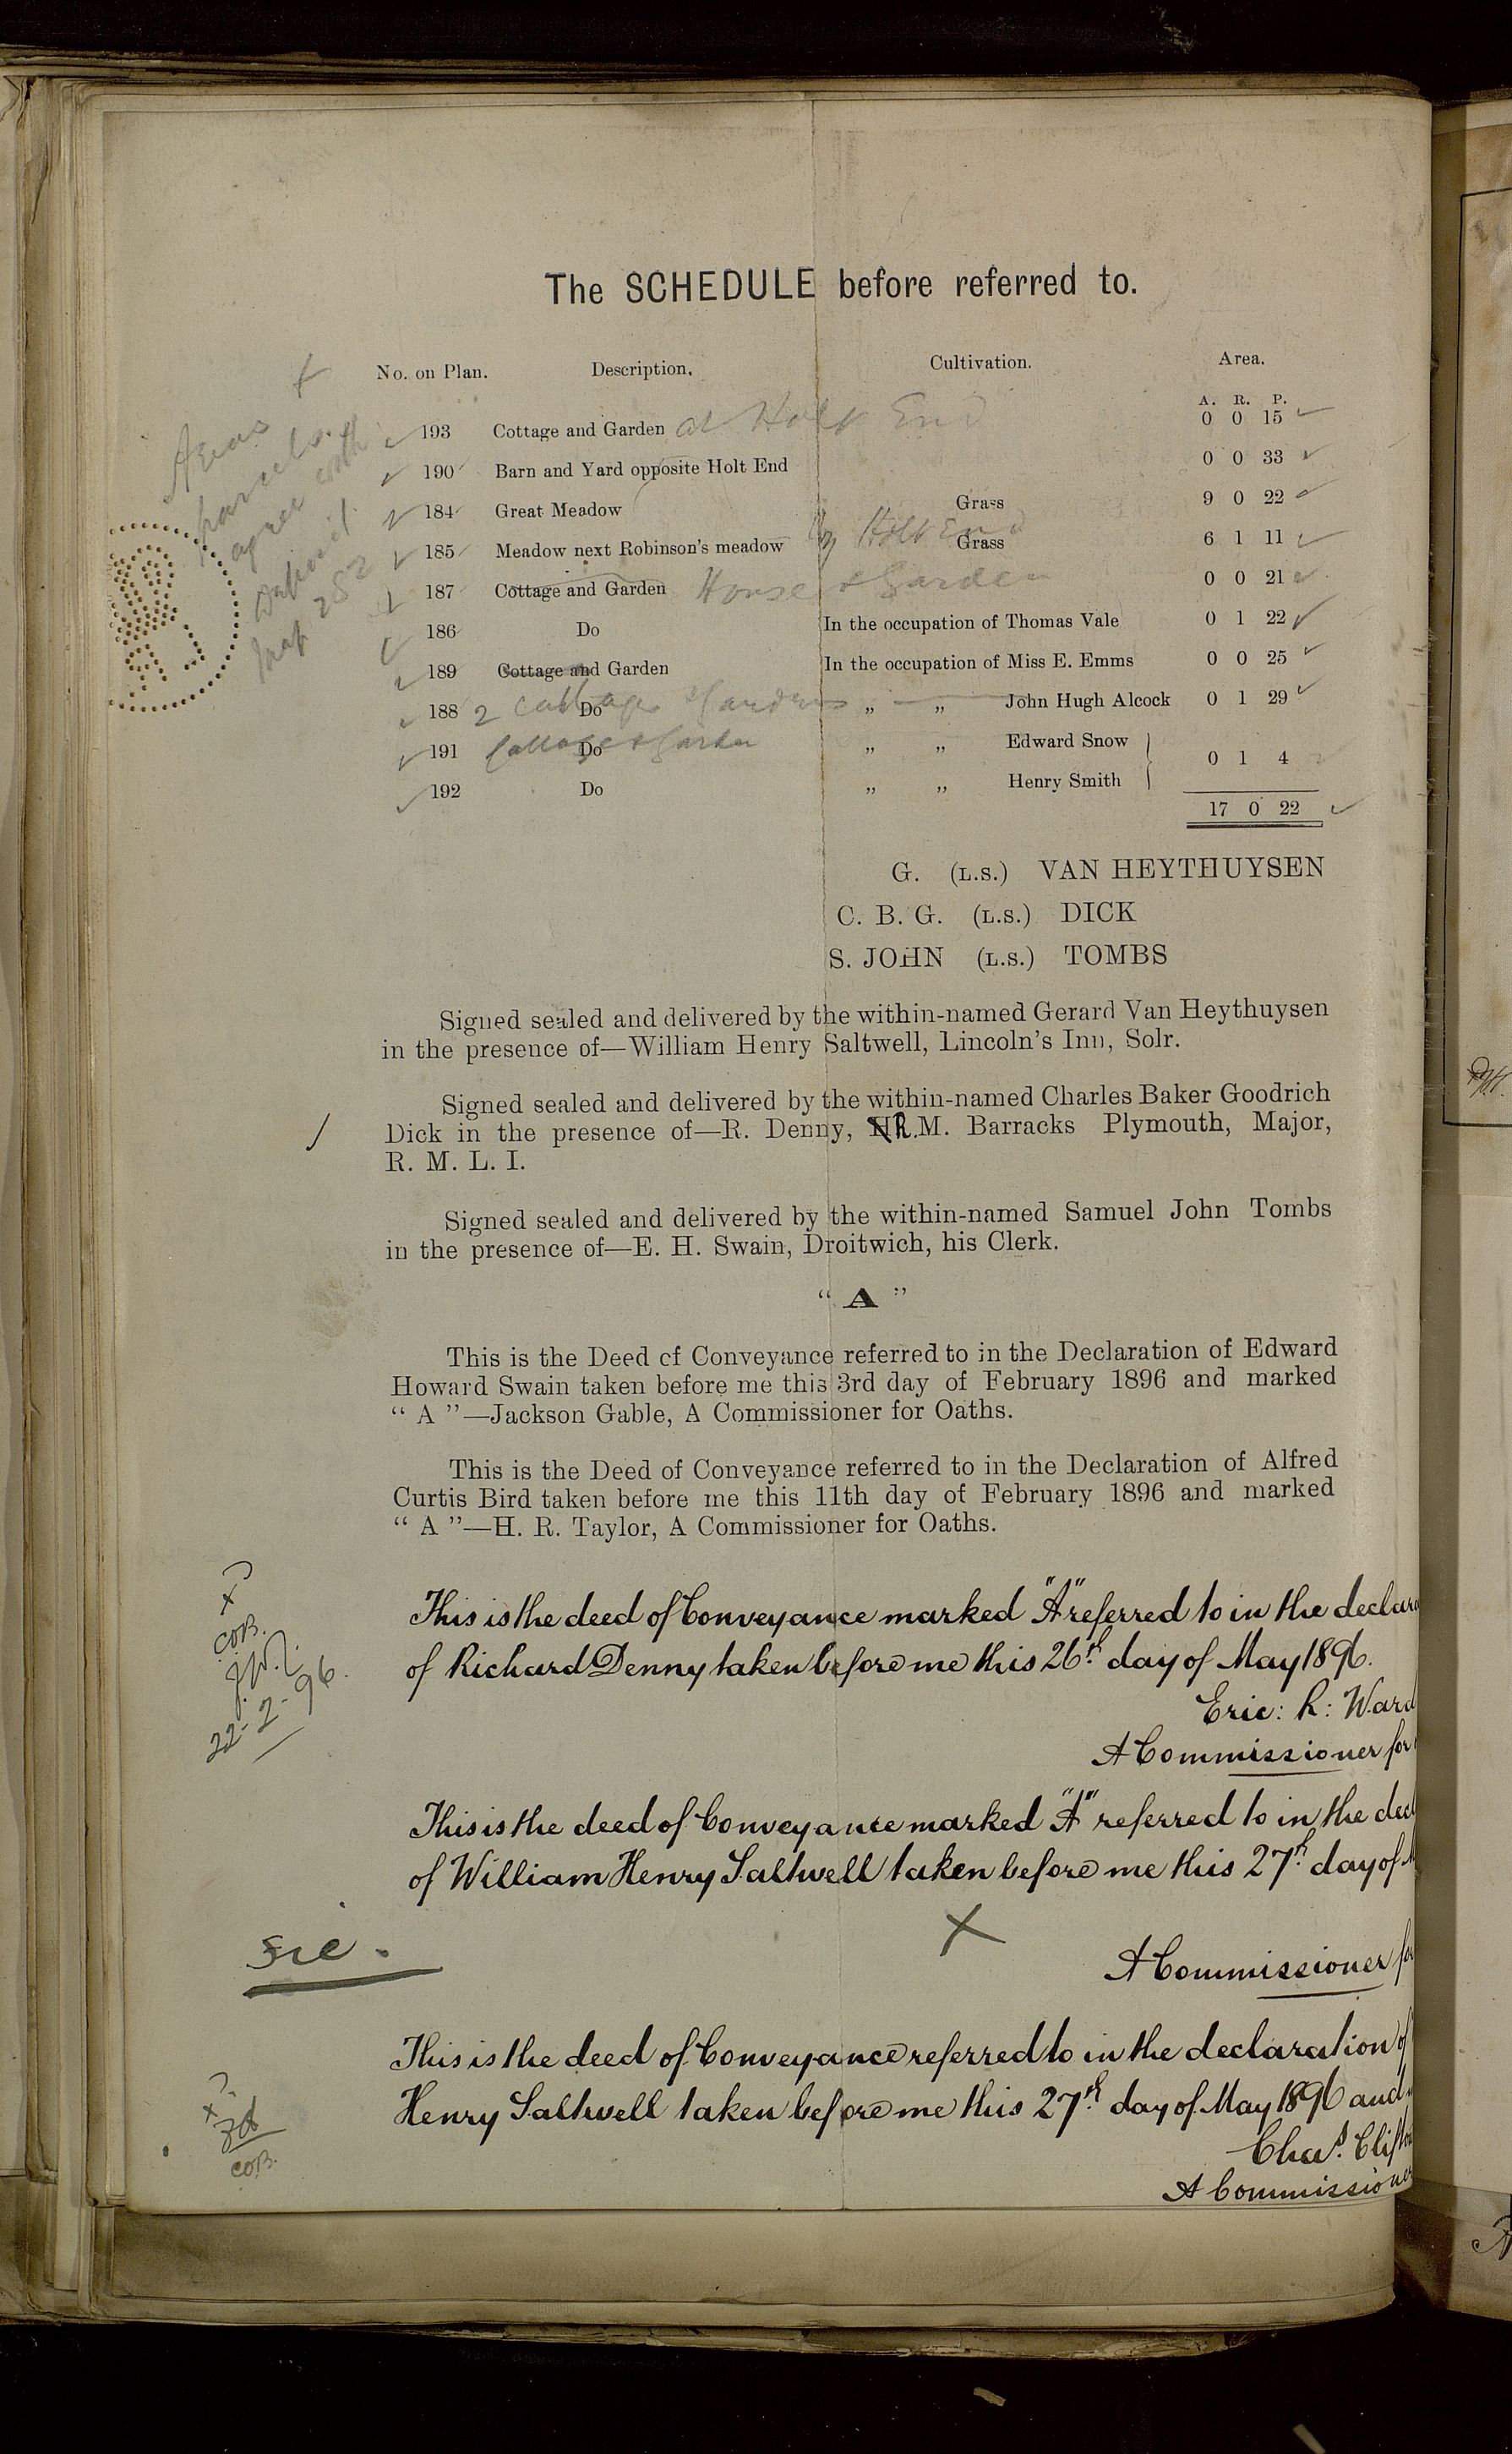 The SCHEDULE before referred to.
No. on Plan. Description. Cultivation. Area.
A. R. P.
193 Cottage and Garden at Holt End 0 0 15
190 Barn and Yard opposite Holt End 0 0 33
184 Great Meadow Grass 9 0 22
185 Meadow next Robinson's meadow Holt End Grass 6 1 11
187 Cottage and Garden House & Garden 0 0 21
186 Do In the occupation of Thomas Vale 0 1 22
189 Cottage and Garden In the occupation of Miss E. Emms 0 0 25
188 2 Cottages Gardens Do „ „ John Hugh Alcock 0 1 29
191 Cottage & Garden Do „ „ Edward Snow
0 1 4
192 Do „ „ Henry Smith
17 0 22
Areas
parcels
agree with
map 252
G. (L.S.) VAN HEYTHUYSEN
C. B. G. (L.S.) DICK
S. JOHN (L.S.) TOMBS
Signed sealed and delivered by the within-named Gerard Van Heythuysen
in the presence of—William Henry Saltwell, Lincoln's Inn, Solr.
Signed sealed and delivered by the within-named Charles Baker Goodrich
Dick in the presence of—R. Denny, R.M. Barracks Plymouth, Major,
R. M. L. I.
Signed sealed and delivered by the within-named Samuel John Tombs
in the presence of—E. H. Swain, Droitwich, his Clerk.
“ A ”
This is the Deed of Conveyance referred to in the Declaration of Edward
Howard Swain taken before me this 3rd day of February 1896 and marked
“ A ”—Jackson Gable, A Commissioner for Oaths.
This is the Deed of Conveyance referred to in the Declaration of Alfred
Curtis Bird taken before me this 11th day of February 1896 and marked
“ A ”—H. R. Taylor, A Commissioner for Oaths.
This is the deed of Conveyance marked "A" referred to in the declara
of Richard Denny taken before me this 26th day of May 1896.
Eric: R: Ward
A Commissioner for
COB.
22-2-96.
This is the deed of Conveyance marked "A" referred to in the decl
of William Henry Saltwell taken before me this 27th day of M
X
sic.
A Commissioner for
This is the deed of Conveyance referred to in the declaration of
Henry Saltwell taken before me this 27th day of May 1896 and
Chas. Clifto
A Commissioner
COB.